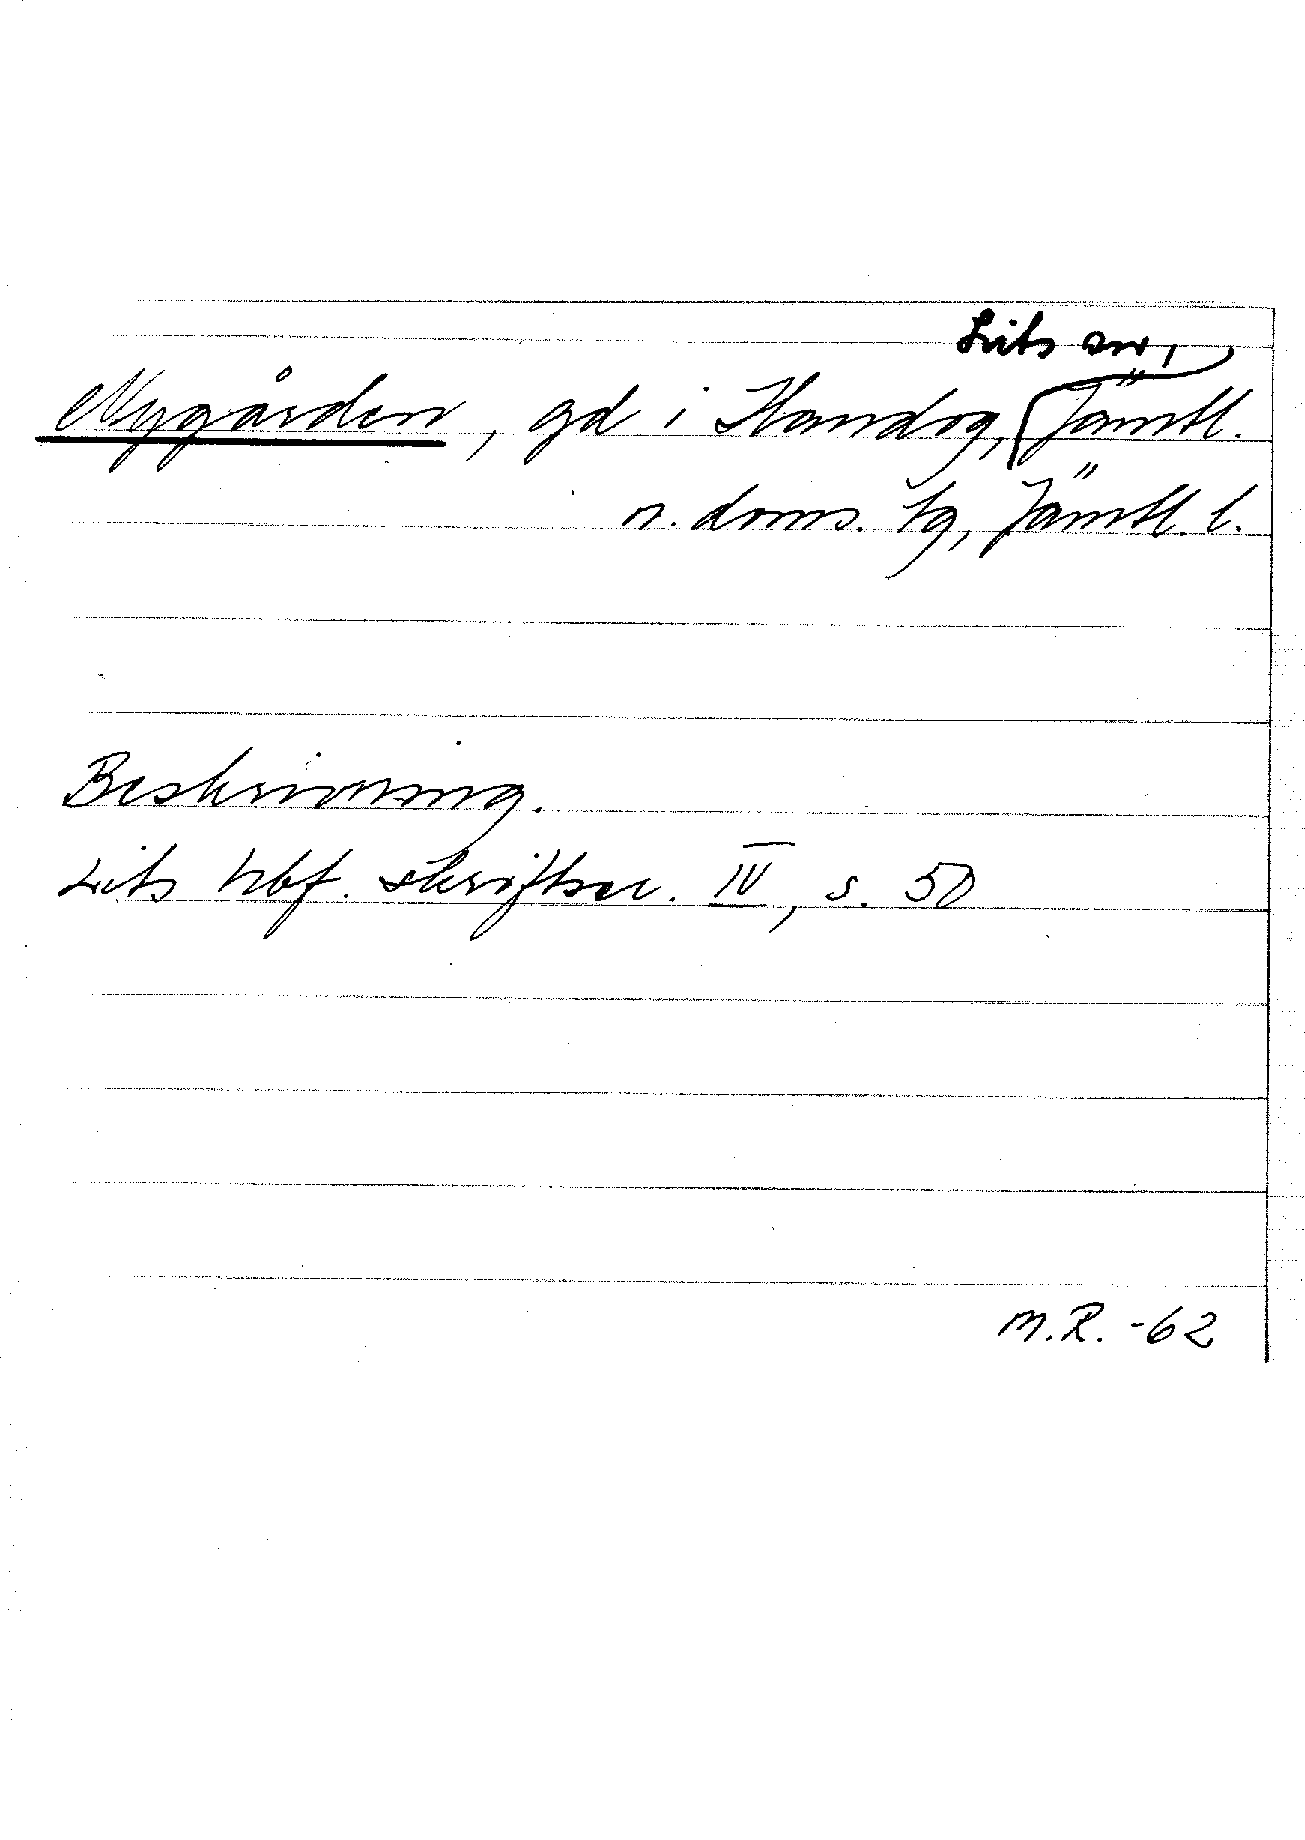 Lits sn,
Nygården, gd i Handog, Jämtl.
n. doms. tg, Jämtl. l.
Beskrivning.
Lits hbf. skriftser. IV, s. 50
M.R. -62